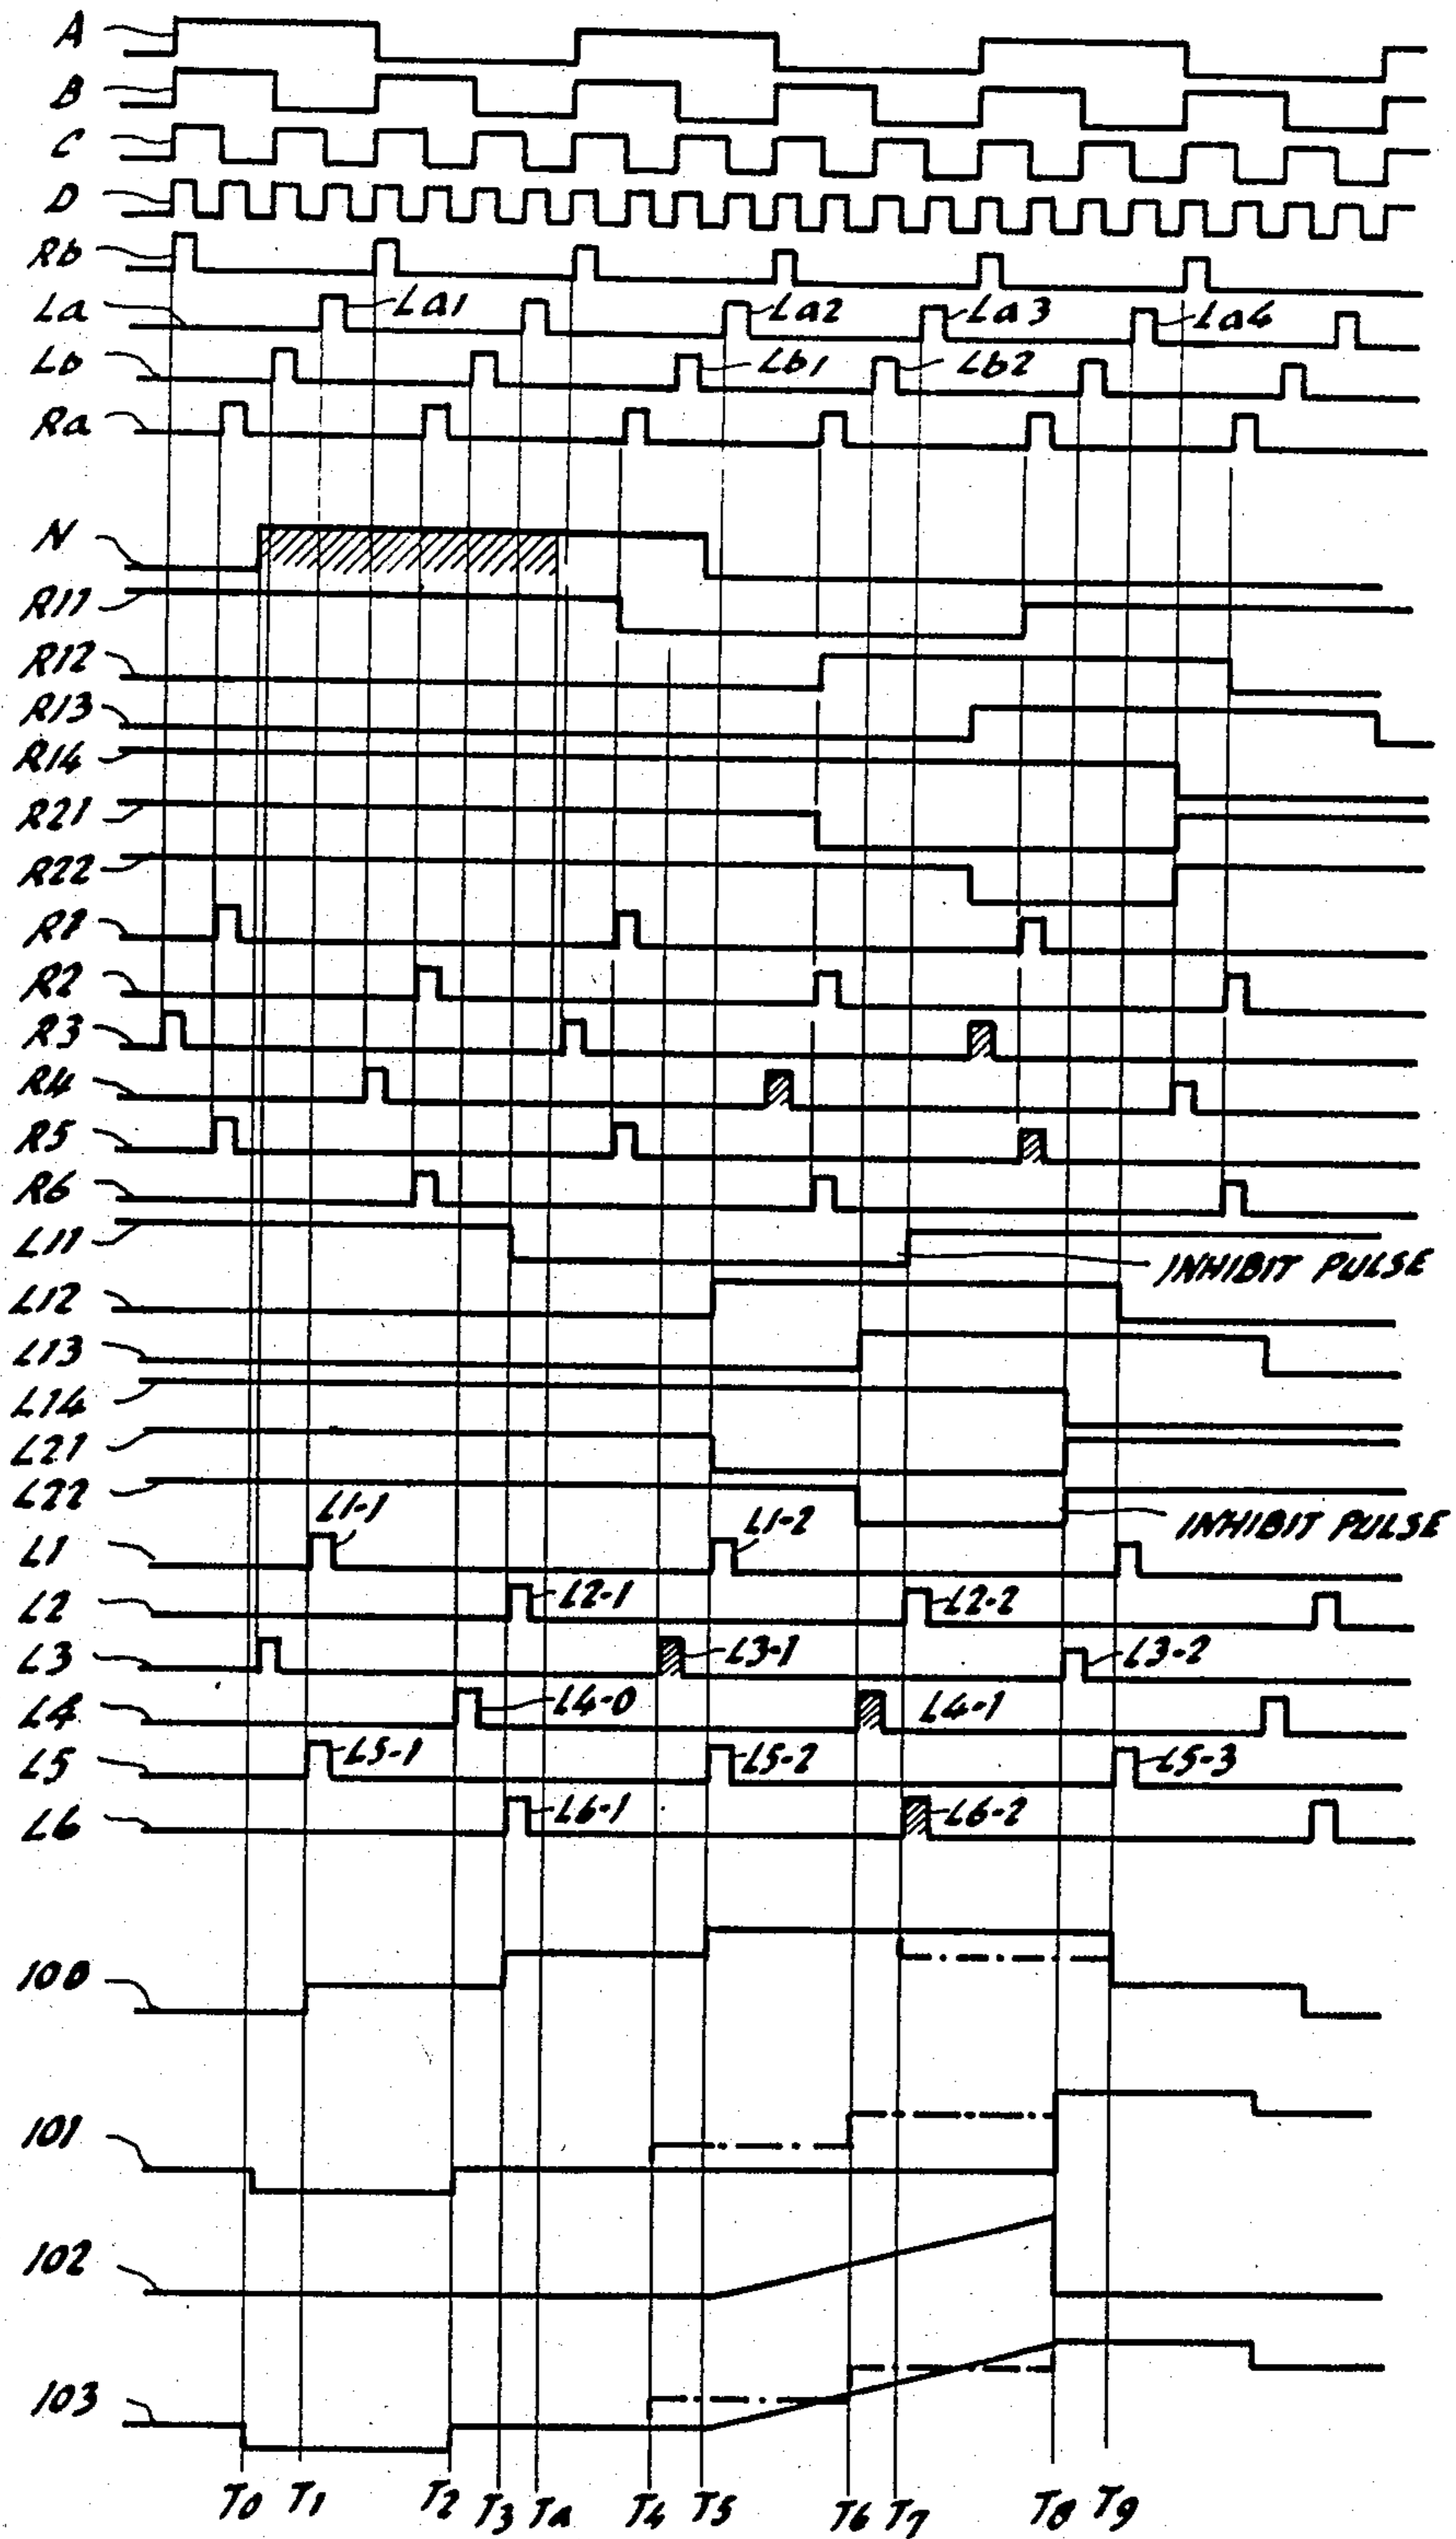 A
B
C
D
Rb
La La1 La2 La3 La4
Lb Lb1 Lb2
Ra
N
R11
R12
R13
R14
R21
R22
R1
R2
R3
R4
R5
R6
L11 INHIBIT PULSE
L12
L13
L14
L21
L22 INHIBIT PULSE
L1 L1-1 L1-2
L2 L2-1 L2-2
L3 L3-1 L3-2
L4 L4-0 L4-1
L5 L5-1 L5-2 L5-3
L6 L6-1 L6-2
100
101
102
103
T0 T1 T2 T3 Ta T4 T5 T6 T7 T8 T9